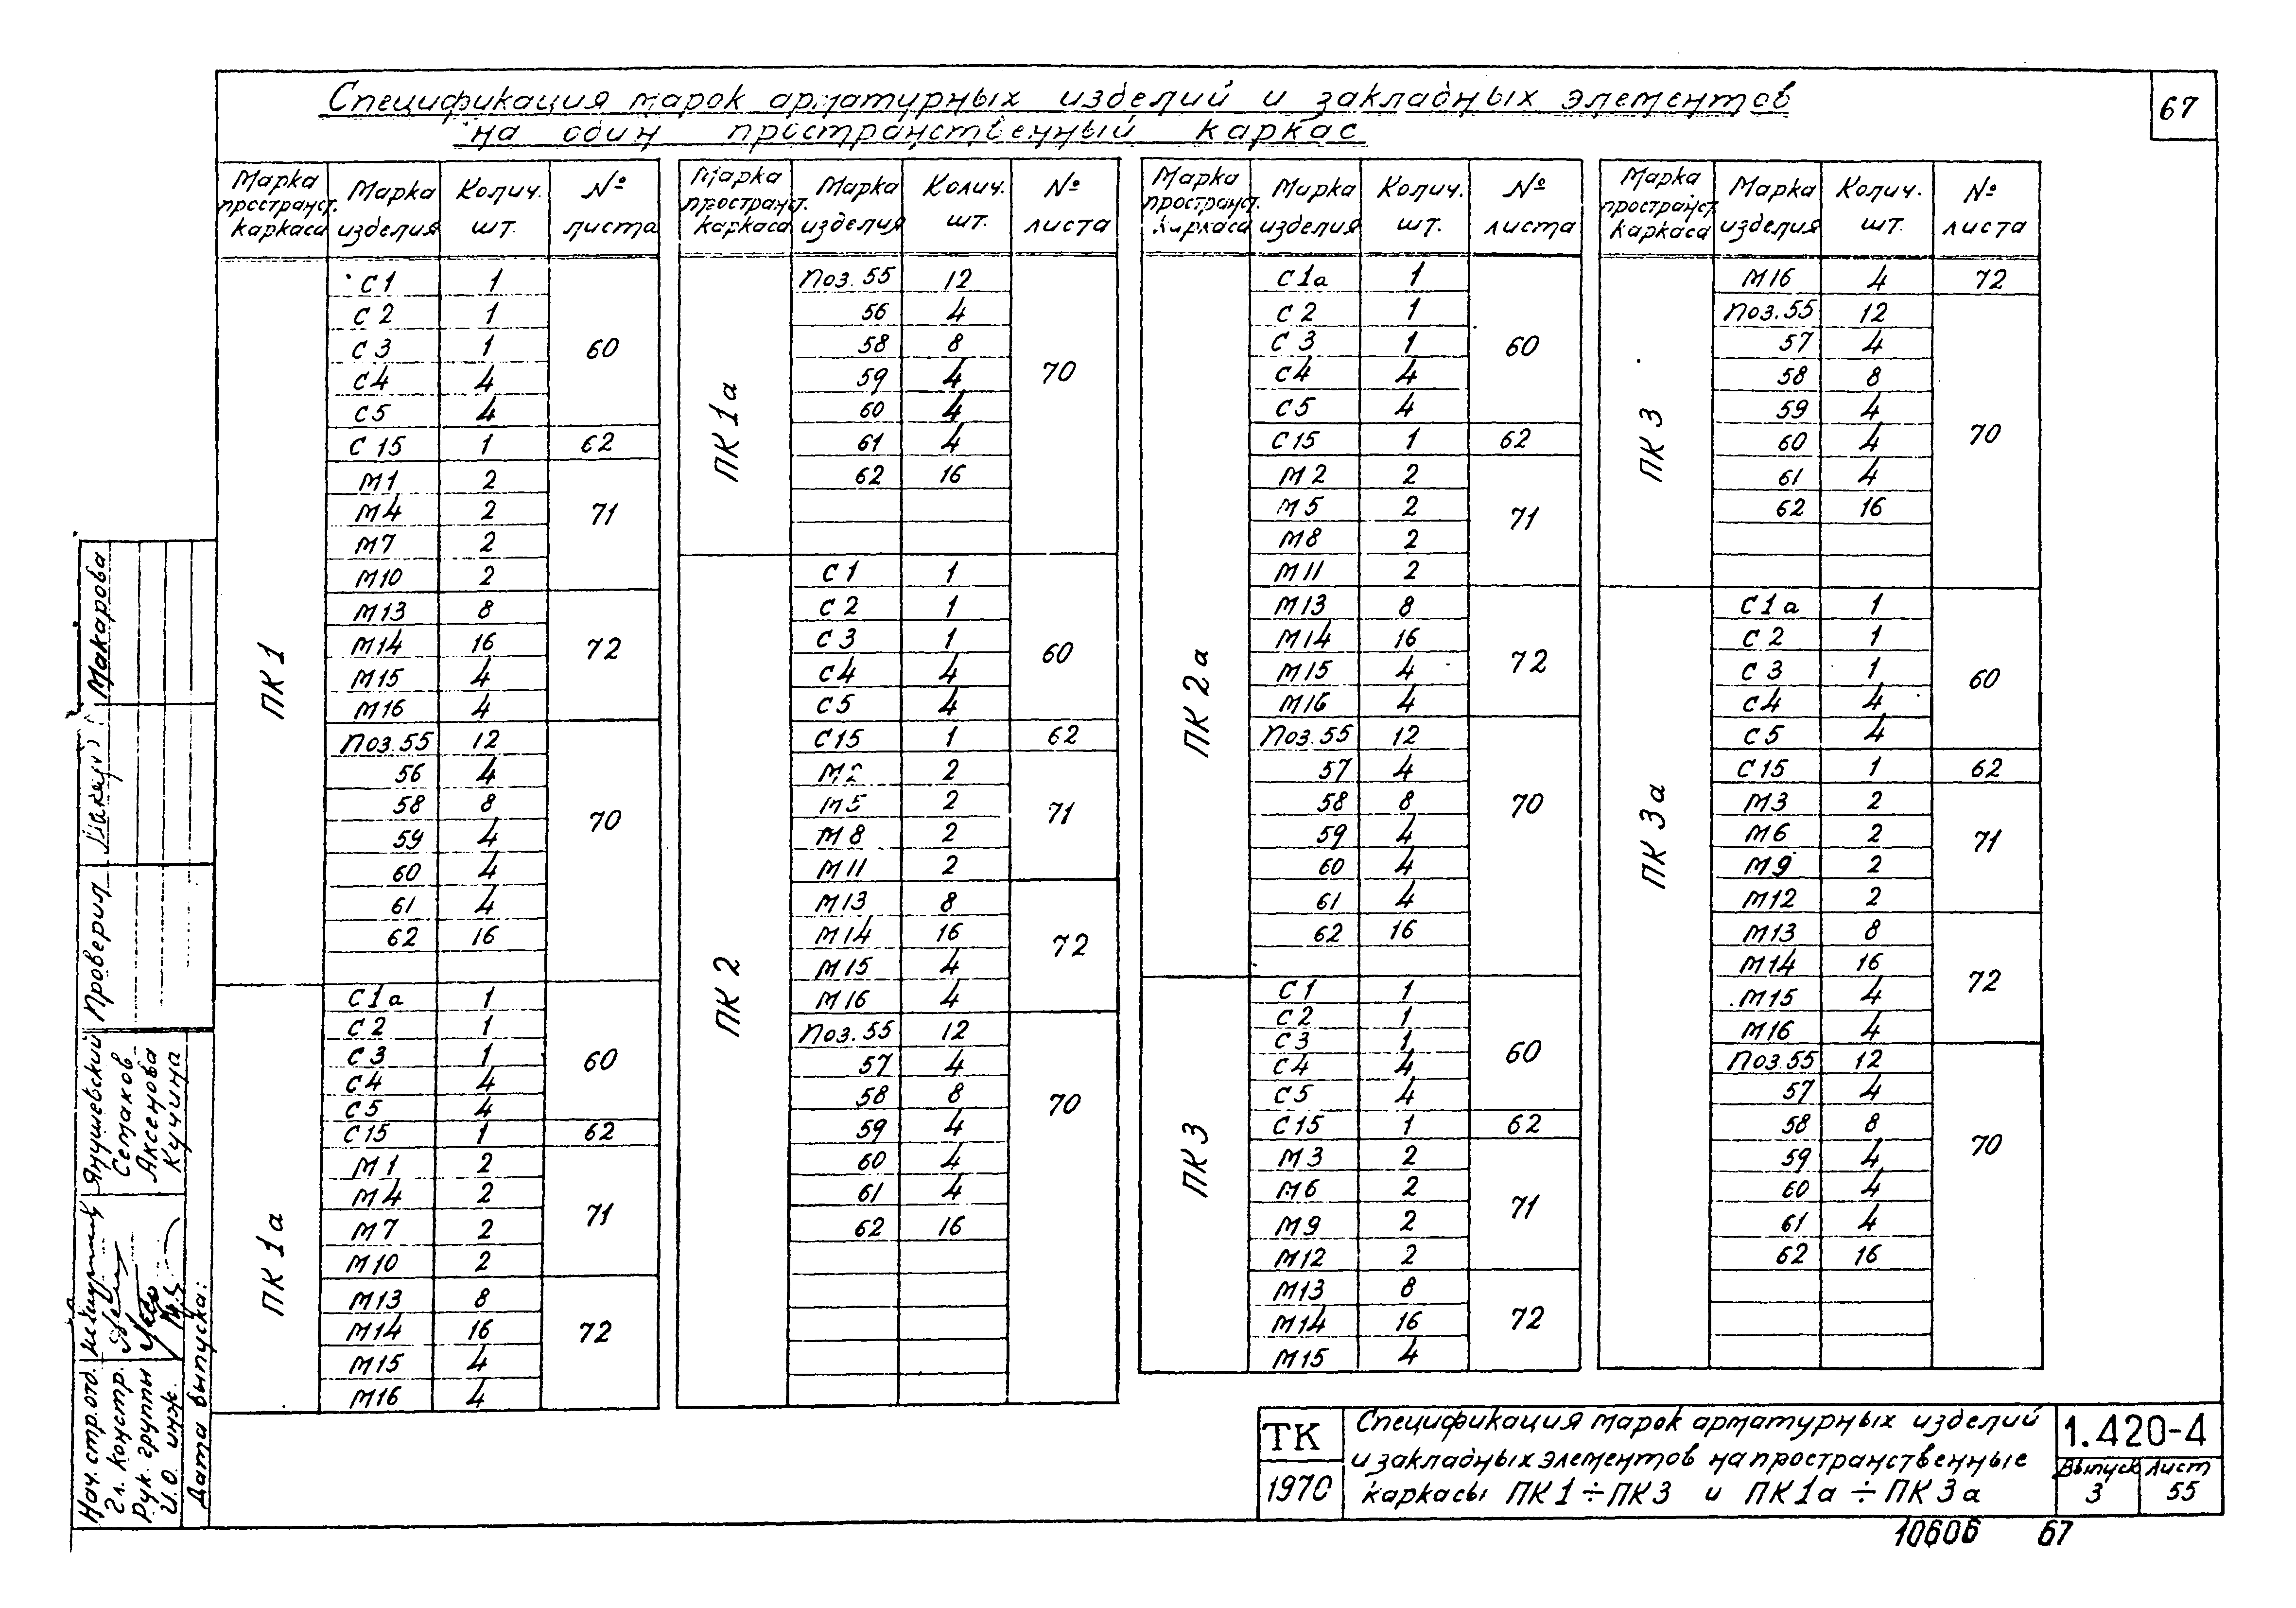 67
Спецификация марок арматурных изделий и закладных элементов
на один пространственный каркас
Марка пространст. каркаса | Марка изделия | Колич. шт. | № листа
ПК 1
С1 1 60
С2 1
С3 1
С4 4
С5 4
С15 1 62
М1 2 71
М4 2
М7 2
М10 2
М13 8 72
М14 16
М15 4
М16 4
Поз.55 12 70
56 4
58 8
59 4
60 4
61 4
62 16
ПК 1а
С1а 1 60
С2 1
С3 1
С4 4
С5 4
С15 1 62
М1 2 71
М4 2
М7 2
М10 2
М13 8 72
М14 16
М15 4
М16 4
Марка пространст. каркаса | Марка изделия | Колич. шт. | № листа
ПК 1а
Поз.55 12 70
56 4
58 8
59 4
60 4
61 4
62 16
ПК 2
С1 1 60
С2 1
С3 1
С4 4
С5 4
С15 1 62
М2 2 71
М5 2
М8 2
М11 2
М13 8 72
М14 16
М15 4
М16 4
Поз.55 12 70
57 4
58 8
59 4
60 4
61 4
62 16
Марка пространст. каркаса | Марка изделия | Колич. шт. | № листа
ПК 2а
С1а 1 60
С2 1
С3 1
С4 4
С5 4
С15 1 62
М2 2 71
М5 2
М8 2
М11 2
М13 8 72
М14 16
М15 4
М16 4
Поз.55 12 70
57 4
58 8
59 4
60 4
61 4
62 16
ПК 3
С1 1 60
С2 1
С3 1
С4 4
С5 4
С15 1 62
М3 2 71
М6 2
М9 2
М12 2
М13 8 72
М14 16
М15 4
Марка пространст. каркаса | Марка изделия | Колич. шт. | № листа
ПК 3
М16 4 72
Поз.55 12 70
57 4
58 8
59 4
60 4
61 4
62 16
ПК 3а
С1а 1 60
С2 1
С3 1
С4 4
С5 4
С15 1 62
М3 2 71
М6 2
М9 2
М12 2
М13 8 72
М14 16
М15 4
М16 4
Поз.55 12 70
57 4
58 8
59 4
60 4
61 4
62 16
Нач. стр. отд. Янушевский Проверил Макарова
Гл. констр. Семаков
Рук. группы Аксенова
И.О. инж. Кучина
Дата выпуска:
ТК
1970
Спецификация марок арматурных изделий
и закладных элементов на пространственные
каркасы ПК1÷ПК3 и ПК1а÷ПК3а
1.420-4
Выпуск 3
Лист 55
10606 67